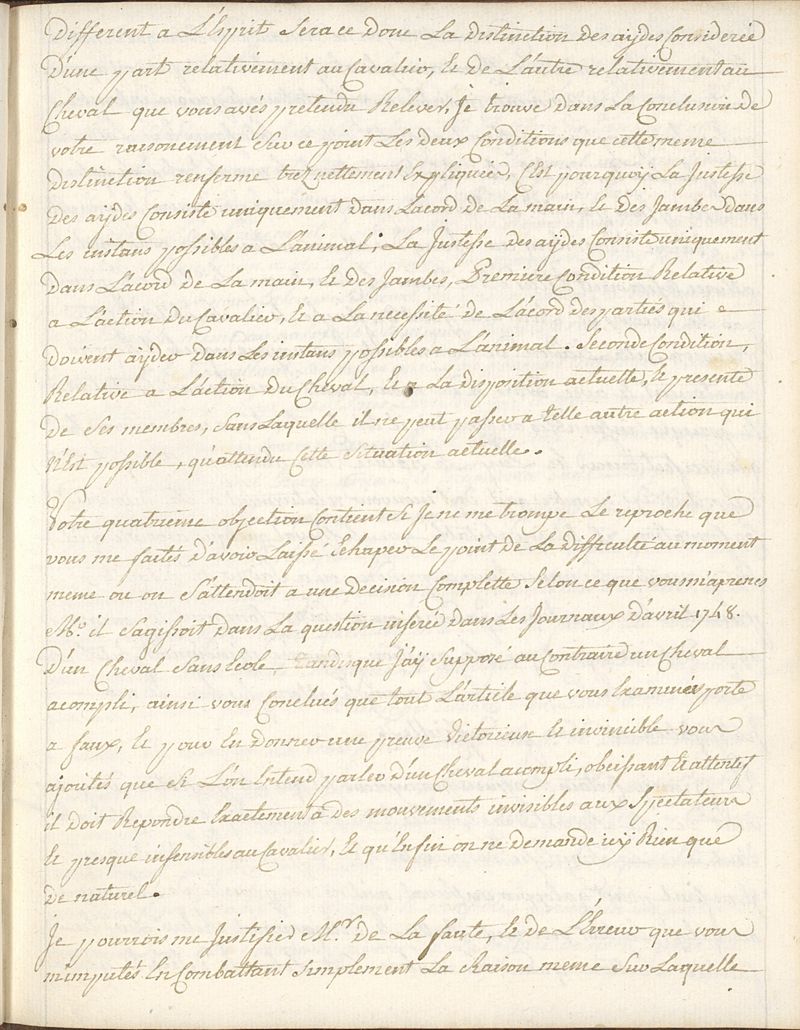 Different a L'Esprit Sera ce Donc La Distinction Des aydes Considerée
D'une part relativement au Cavalier, & de L'autre relativement au
Cheval que vous avés pretendu Relever, Je trouve dans La Conclusion de
votre raisonement Sur ce point Les Deux Conditions que cette meme
Distinction renferme trez nettement Expliquées, C'Est pourquoy La Justesse
Des aydes Consiste uniquement dans Lacord de La main, & des Jambes dans
Les instans possibles a L'animal; La Justesse des aydes Consiste uniquement
dans L'acord de La main, & des Jambes, Premiere Condition Relative
a L'action Du Cavalier, & a La necessité de L'acord des partiés qui
Doivent ayder dans Les instans possibles a L'animal. Seconde Condition,
Relative a L'action Du Cheval, & a La disposition actuelle, & presente
De Ses membres, Sans Laquelle il ne peut passer a telle autre action qui
n'Est possible, qu'attendu Cette Situation actuelle.
Votre quatrieme objection Contient Si Je ne me trompe Le reproche que
vous me faités D'avoir Laissé Echaper Le point de La Difficulté au moment
meme ou on S'attendoit a une Decision Complette Selon ce que vous m'aprenes
Mr. il S'agissoit dans La question inserée dans Les Journaux D'avril 1748.
D'un Cheval Sans Ecole, tandisque J'ay Supposé au Contraire un Cheval
acompli, ainsi vous Conclués que tout L'article que vous Examinés porte
a faux, & pour En donner une preuve Victorieuse & invincible vous
ajoutés que Si L'on Entend parler D'un Cheval acompli, obeissant & attentif
il Doit Repondre Exactement a des mouvements invisibles aux Spectateurs
& presque insensibles au Cavalier, & qu'Enfin on ne Demande icy Rien que
De naturel.
Je pourrois me Justifier Mr. de La faute, & de L'Erreur que vous
m'imputés En Combattant Simplement La Raison meme Sur Laquelle